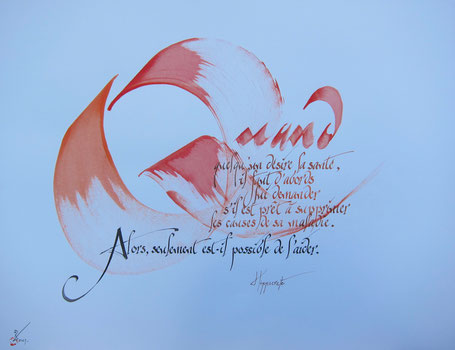 Quand
quelqu'un désire la santé,
il faut d'abords
lui demander
s'il est prêt à supprimer
les causes de sa maladie.
Alors, seulement est-il possible de l'aider.
Hippocrate